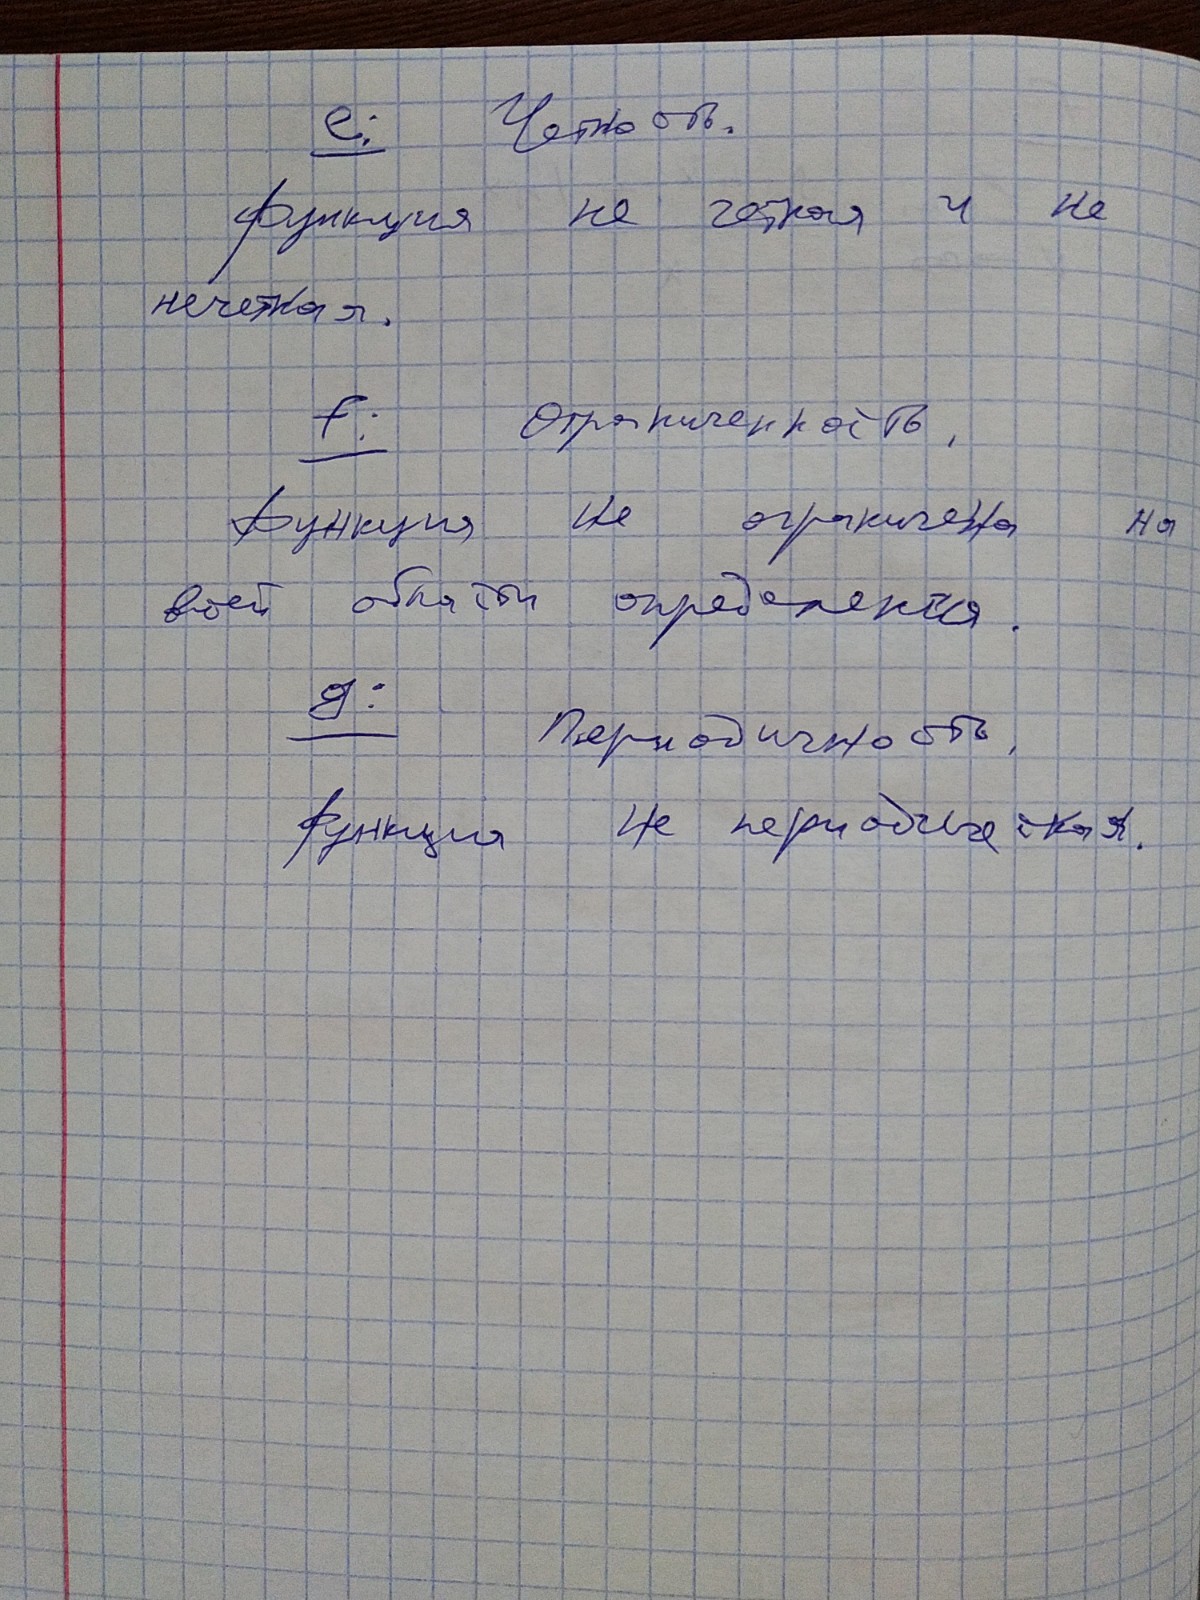 e: Четность.
Функция не четная и не
нечетная.
f: Ограниченность.
Функция не ограничена на
всей области определения.
g: Периодичность.
Функция не периодическая.